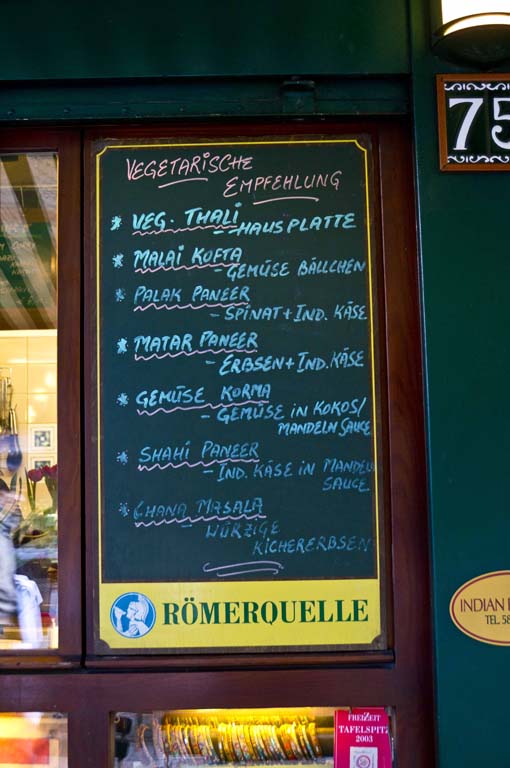 75
VEGETARISCHE
EMPFEHLUNG
* VEG. THALI
- HAUSPLATTE
* MALAI KOFTA
- GEMÜSE BÄLLCHEN
* PALAK PANEER
- SPINAT + IND. KÄSE
* MATAR PANEER
- ERBSEN + IND. KÄSE
* GEMÜSE KORMA
- GEMÜSE IN KOKOS/
MANDELN SAUCE
* SHAHI PANEER
- IND. KÄSE IN MANDELN
SAUCE
* CHANA MASALA
- WÜRZIGE
KICHERERBSEN
RÖMERQUELLE
INDIAN
TEL. 58
FREIZEIT
TAFELSPITZ
2003